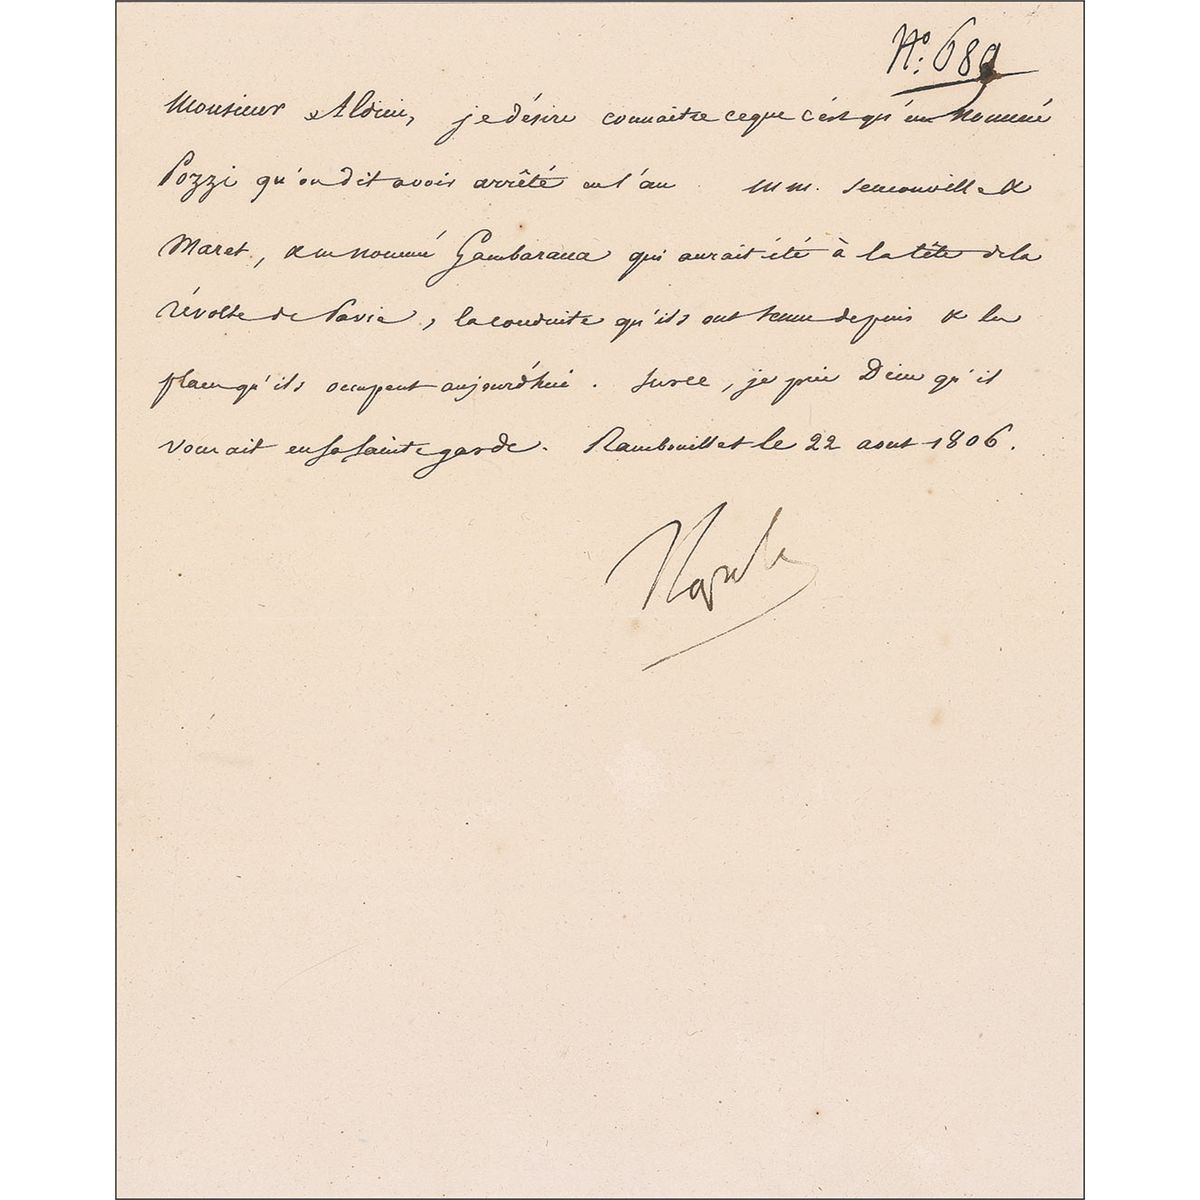 N.º 689
Monsieur Aldini, je désire connaitre ce que c'est qu'un nommé
Pozzi qu'on dit avoir arrêté en l'an mm. Semonville &
Maret, & un nommé Gambarana qui aurait été à la tête de la
révolte de Pavie, la conduite qu'ils ont tenue depuis & les
places qu'ils occupent aujourd'hui. Sur ce, je prie Dieu qu'il
vous ait en sa sainte garde. Rambouillet le 22 aout 1806.
Napole